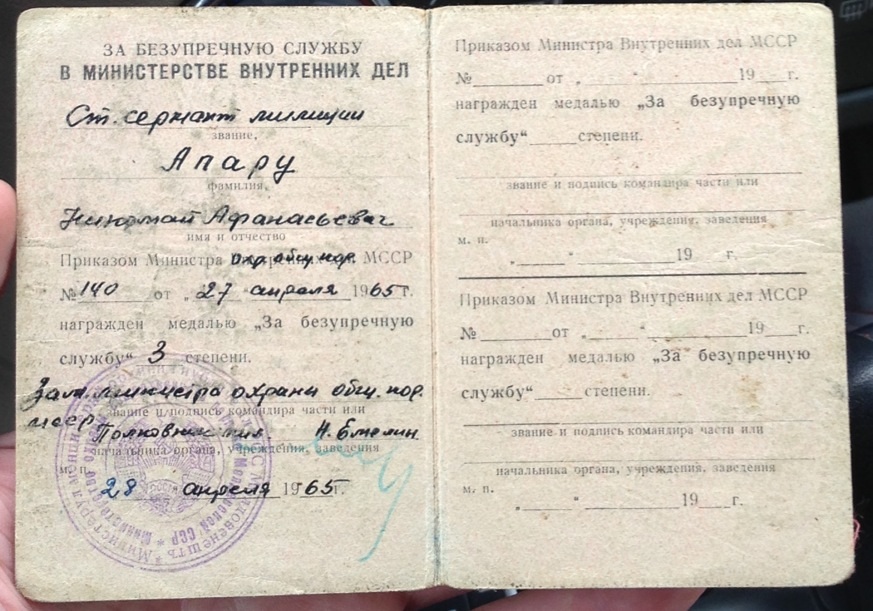 ЗА БЕЗУПРЕЧНУЮ СЛУЖБУ
В МИНИСТЕРСТВЕ ВНУТРЕННИХ ДЕЛ
Ст. сержант милиции
звание,
Апару
фамилия,
Николай Афанасьевич
имя и отчество
Приказом Министра охр. общ. пор. МССР
№ 140 от „27" апреля 1965 г.
награжден медалью „За безупречную
службу" 3 степени.
Зам. министра охраны общ. пор.
МССР
звание и подпись командира части или
Полковник м-ции Н. Емелин
начальника органа, учреждения, заведения
м. п.
28 апреля 1965 г.
Приказом Министра Внутренних дел МССР
№ ____ от „ ____ " ____ 19 __ г.
награжден медалью „За безупречную
службу" ____ степени.
звание и подпись командира части или
начальника органа, учреждения, заведения
м. п.
„ ____ " ____ 19 __ г.
Приказом Министра Внутренних дел МССР
№ ____ от „ ____ " ____ 19 __ г.
награжден медалью „За безупречную
службу" ____ степени.
звание и подпись командира части или
начальника органа, учреждения, заведения
м. п.
„ ____ " ____ 19 __ г.